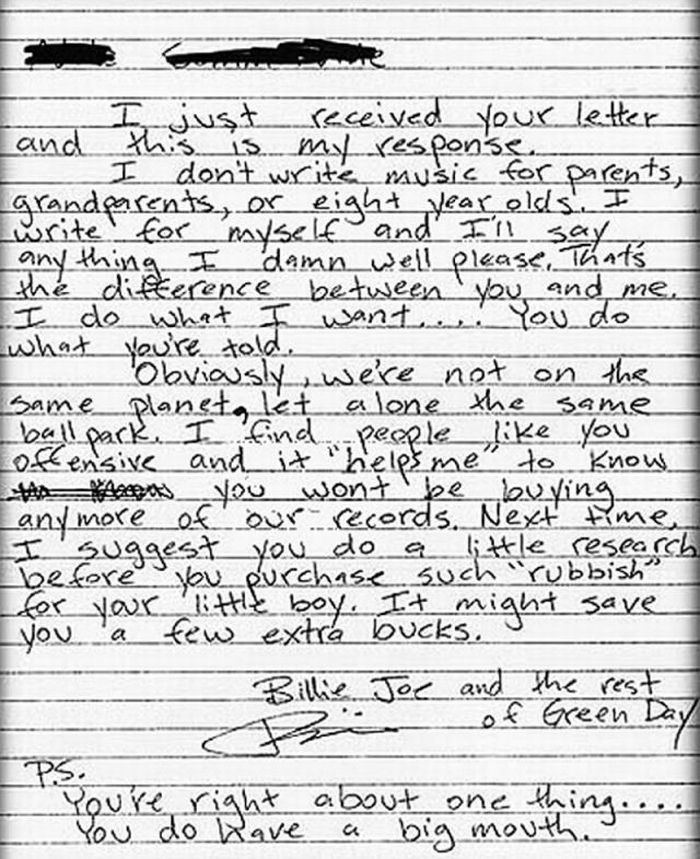 I just received your letter
and this is my response.
I don't write music for parents,
grandparents, or eight year olds. I
write for myself and I'll say
anything I damn well please. That's
the difference between you and me.
I do what I want.... You do
what you're told.
Obviously, we're not on the
same planet, let alone the same
ball park. I find people like you
offensive and it "helps me" to know
you won't be buying
anymore of our records. Next time,
I suggest you do a little research
before you purchase such "rubbish"
for your little boy. It might save
you a few extra bucks.
Billie Joe and the rest
of Green Day
P.S.
You're right about one thing....
You do have a big mouth.